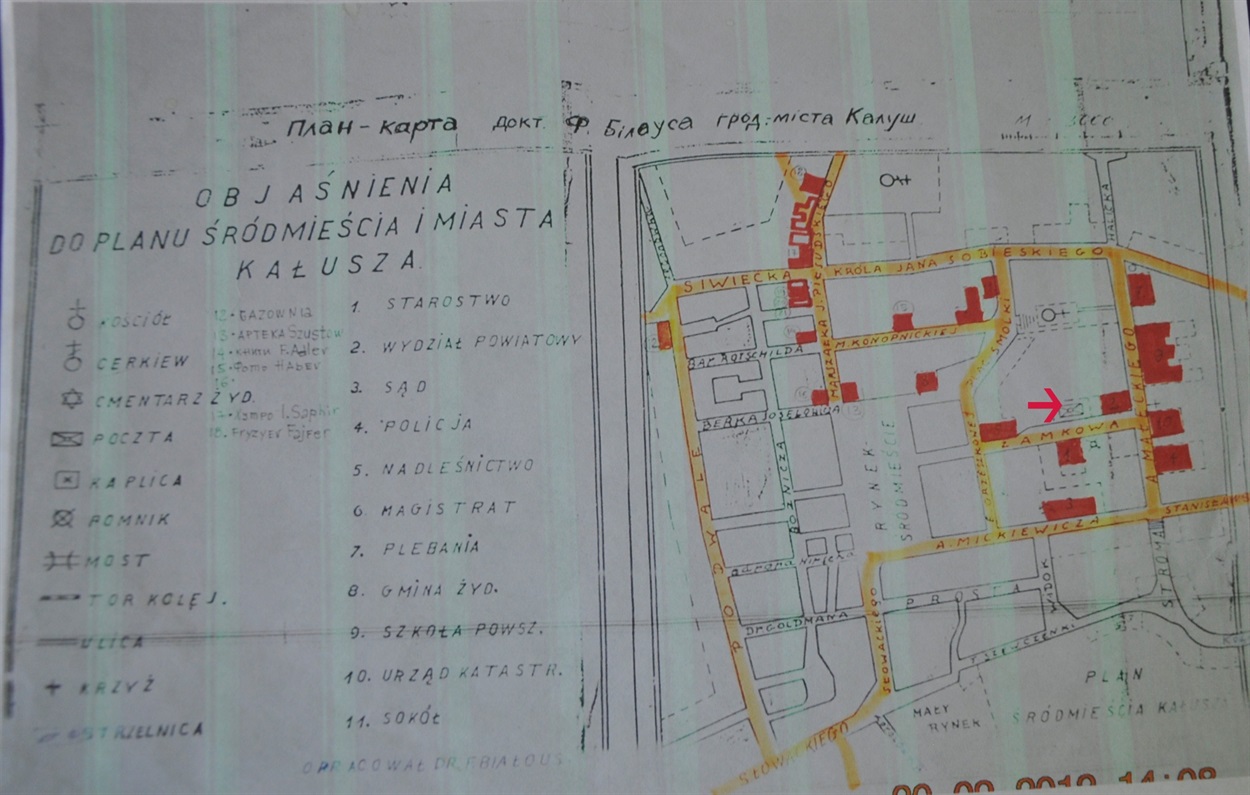 План-карта докт. Ф. Білауса грод. міста Калуш
OBJAŚNIENIA
DO PLANU ŚRÓDMIEŚCIA I MIASTA
KAŁUSZA.
KOŚCIÓŁ
CERKIEW
CMENTARZ ŻYD.
POCZTA
KAPLICA
POMNIK
MOST
TOR KOLEJ.
ULICA
KRZYŻ
STRZELNICA
12. GAZOWNIA
13. APTEKA Szustow
14. F. Adler
15.
16.
17. I. Saphir
18. Fryzyer Fajfer
1. STAROSTWO
2. WYDZIAŁ POWIATOWY
3. SĄD
4. POLICJA
5. NADLEŚNICTWO
6. MAGISTRAT
7. PLEBANIA
8. GMINA ŻYD.
9. SZKOŁA POWSZ.
10. URZĄD KATASTR.
11. SOKÓŁ
OPRACOWAŁ DR. F. BIAŁOUS
HALICKA
SIWIECKA
KRÓLA JANA SOBIESKIEGO
MARSZAŁKA J. PIŁSUDSKIEGO
M. KONOPNICKIEJ
SMOLKI
BAR. ROTSCHILDA
BERKA JOSELOWICZA
BOŻNICZA
RYNEK-
ŚRÓDMIEŚCIE
E. ORZESZKOWEJ
ZAMKOWA
A. MAŁECKIEGO
A. MICKIEWICZA
STANISŁAWO
PODWALE
DR. GOLDMANA
PROSTA
WIDOK
STROMA
T. SZEWCZENKI
SŁOWACKIEGO
SŁOWACKIEGO
MAŁY
RYNEK
PLAN
ŚRÓDMIEŚCIA KAŁUSZA